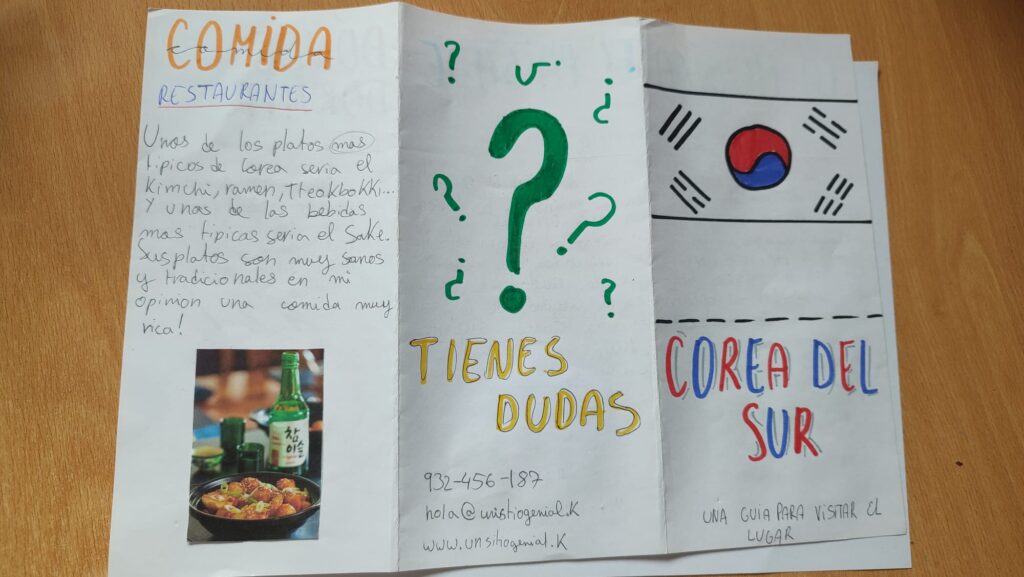 COMIDA
comida
RESTAURANTES
Unos de los platos mas
tipicos de Corea seria el
Kimchi, ramen, Tteokbokki...
Y unas de las bebidas
mas tipicas seria el Sake.
Sus platos son muy sanos
y tradicionales en mi
opinion una comida muy
rica!
참
이슬
?
?
¿
?
?
?
¿
?
TIENES
DUDAS
932-456-187
hola@unsitiogenial.K
www.unsitiogenial.K
COREA DEL
SUR
UNA GUIA PARA VISITAR EL
LUGAR